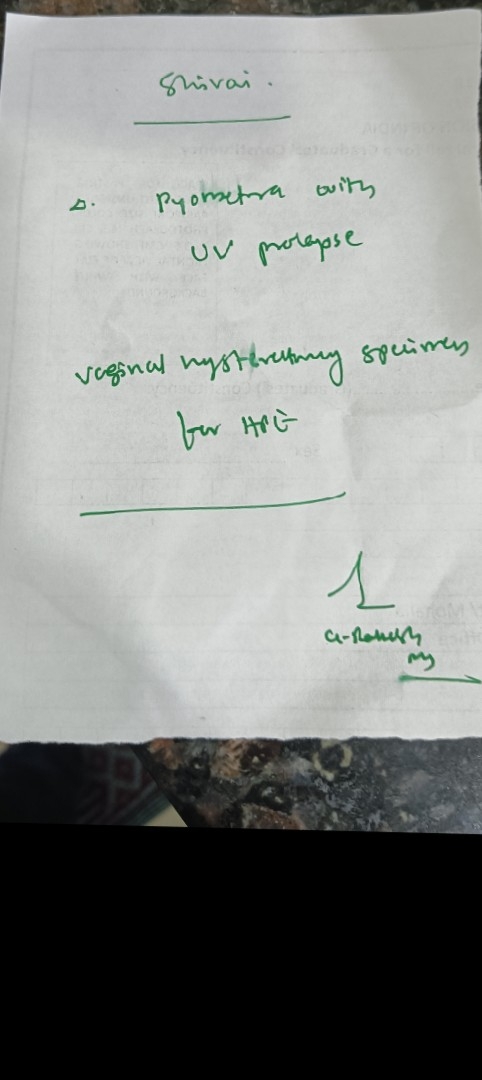 Shivai.
Δ. Pyometra with
UV prolapse
vaginal hysterectomy specimen
for HPE